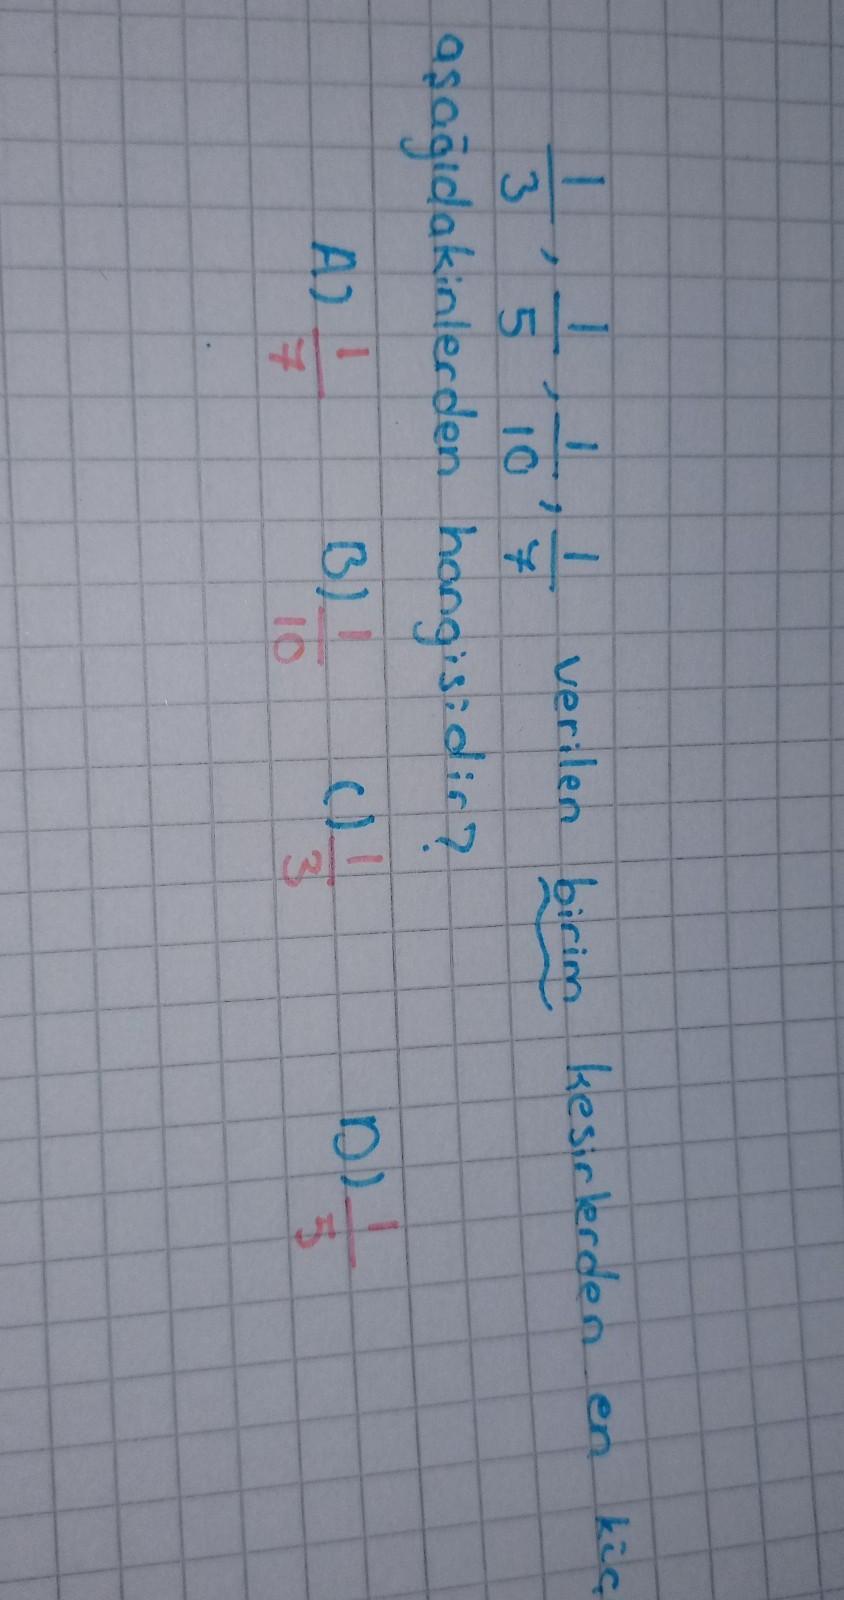 1/3, 1/5, 1/10, 1/7 verilen birim kesirlerden en
aşağıdakinlerden hangisidir?
A) 1/7 B) 1/10 C) 1/3 D) 1/5